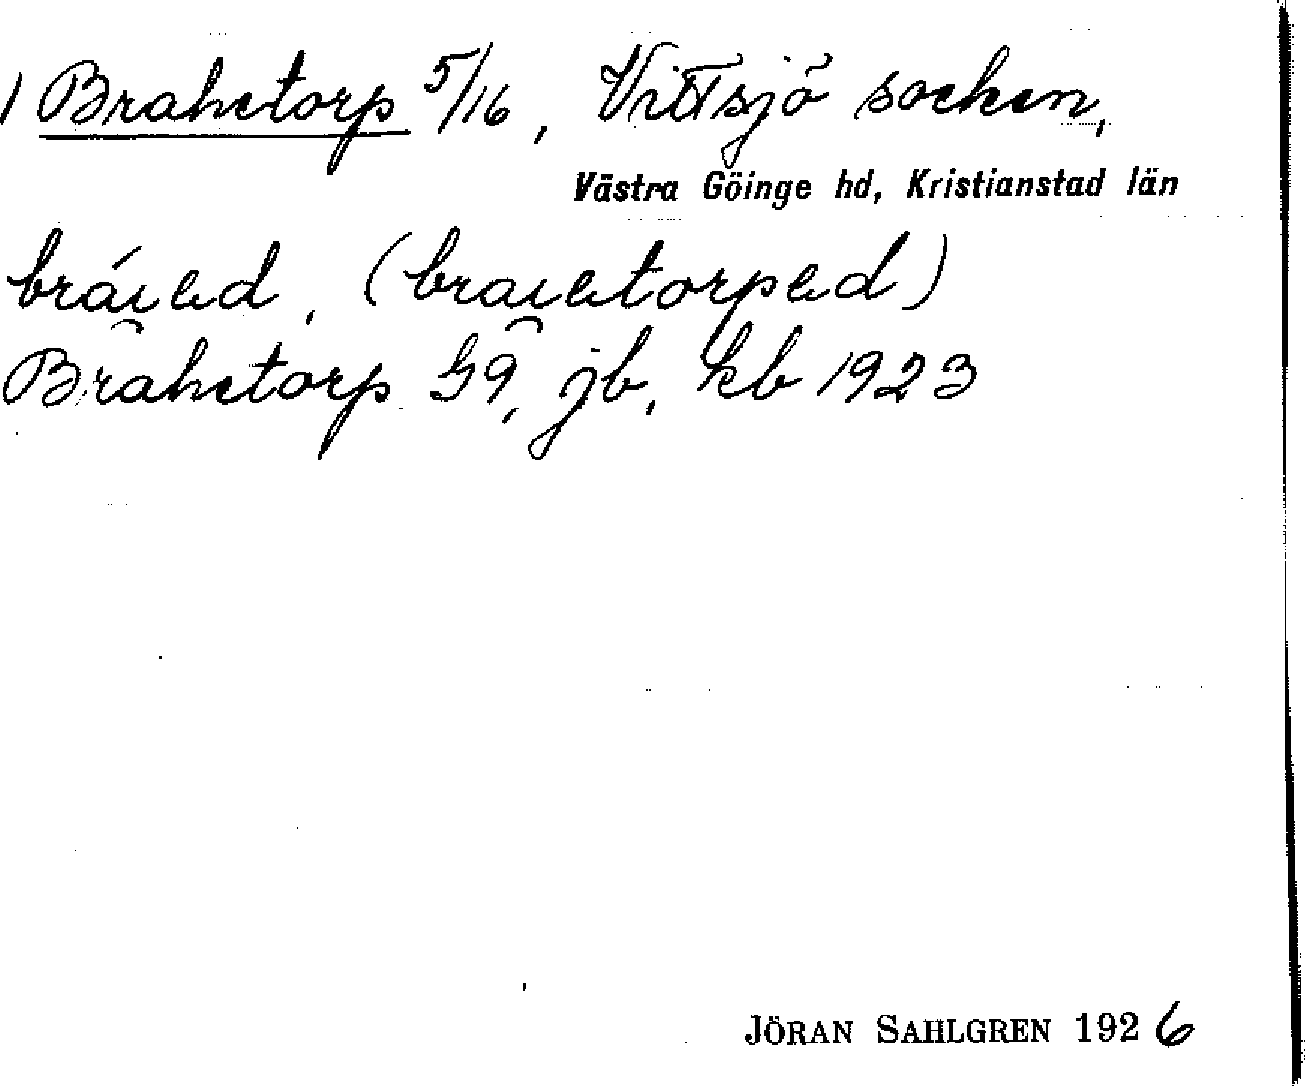 1 Brahetorp 5/16, Vittsjö socken,
Västra Göinge hd, Kristianstad län
bráɩəd, (braɩətorpəd)
Brahetorp G9, jb, kb 1923
JÖRAN SAHLGREN 1926